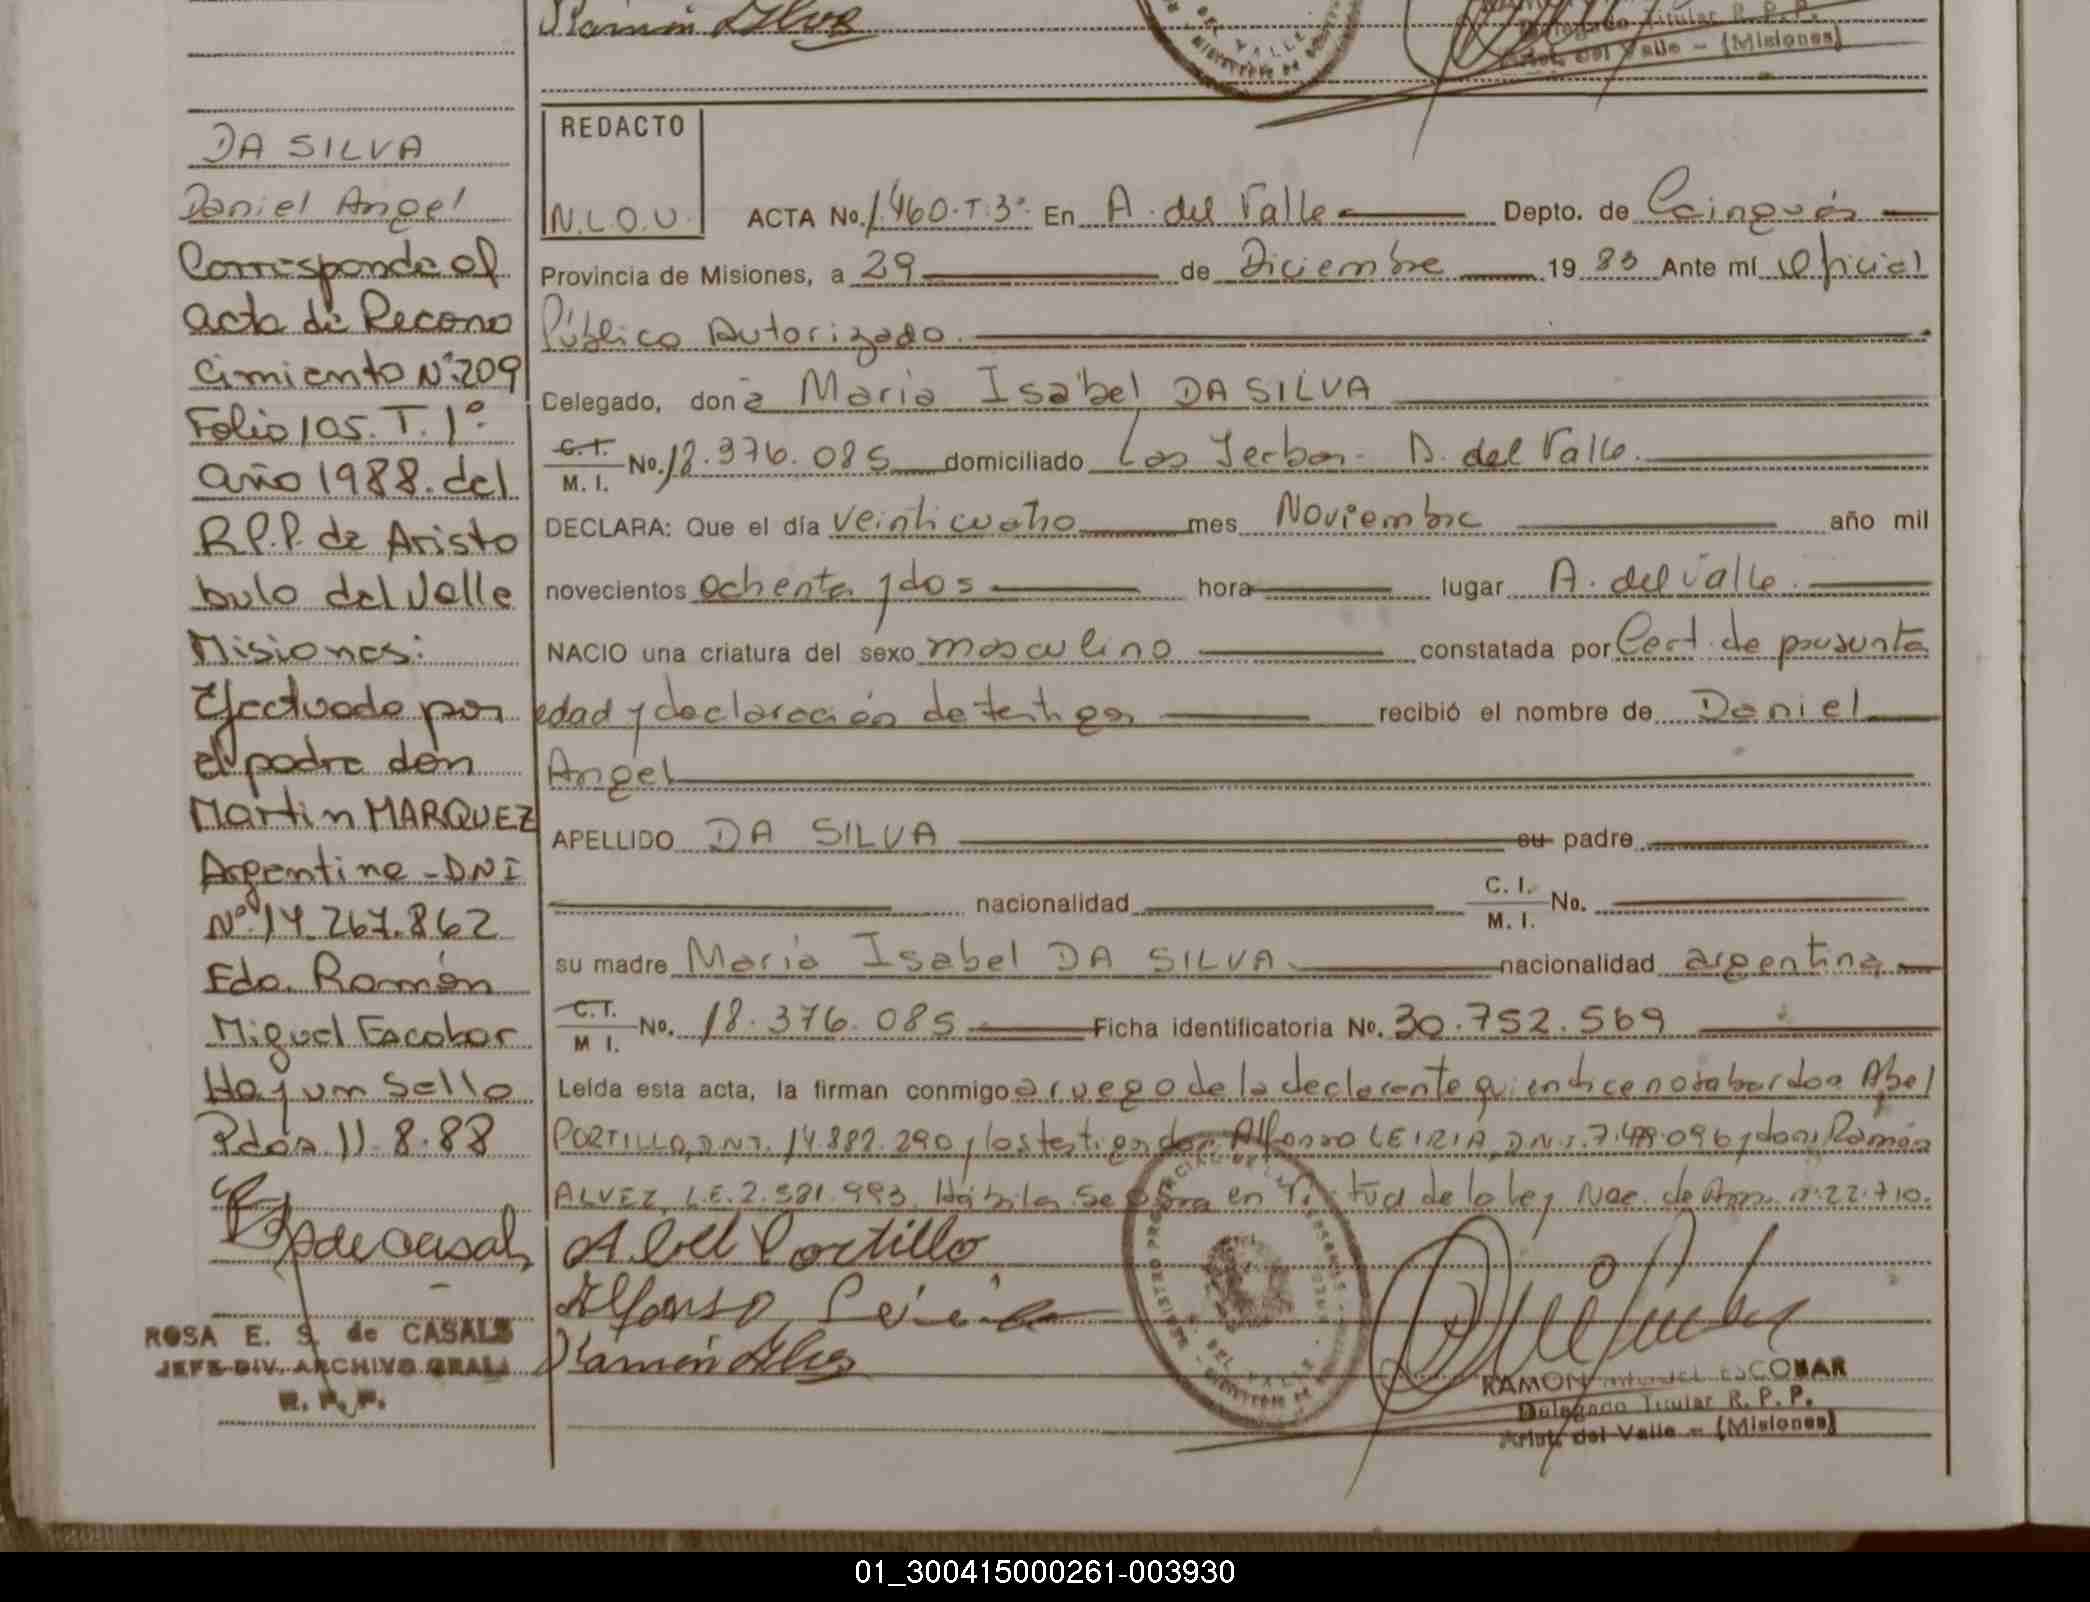 Ramón Alvez
DEL VALLE
Delegado Titular R. P. P.
Arist. del Valle - (Misiones)
DA SILVA
Daniel Angel
Corresponde al
acta de Recono
cimiento Nº 209
Folio 105. T. 1º
año 1988. del
R.P.P. de Aristo
bulo del Valle
Misiones:
Efectuado por
el padre don
Martin MARQUEZ
Argentino - DNI
Nº 14.267.862
Fdo. Ramón
Miguel Escobar
Hay un Sello
Pdas. 11-8-88
ROSA E. S. de CASALS
JEFE DIV. ARCHIVO GRAL.
R. P. P.
REDACTO
N.L.O.U.
ACTA No. 1.460.T.3º En A. del Valle Depto. de Cainguás
Provincia de Misiones, a 29 de Diciembre 19 83 Ante mí Oficial
Público Autorizado.
Delegado, don a Maria Isabel DA SILVA
C.I. M. I. No. 18.376.085 domiciliado Las Yerbas - A. del Valle.
DECLARA: Que el día veinticuatro mes Noviembre año mil
novecientos ochenta y dos hora lugar A. del Valle.
NACIO una criatura del sexo masculino constatada por Cert. de presunta
edad y declaración de testigos recibió el nombre de Daniel
Angel
APELLIDO DA SILVA su padre
nacionalidad C. I. M. I. No.
su madre Maria Isabel DA SILVA nacionalidad argentina
C.I. M I. No. 18.376.085 Ficha identificatoria No. 30.752.569
Leída esta acta, la firman conmigo a ruego de la declarante quien dice no saber don Abel
PORTILLO, D.N.I. 14.882.290 y los testigos don Alfonso LEIRIA, D.N.I. 7.499.096 y don Ramón
ALVEZ, L.E. 2.581.993. Hábiles. Se obra en virtud de la ley Nac. de Amn. nº 22.710.
Abel Portillo
Alfonso Leiria
Ramón Alvez
RAMON MIGUEL ESCOBAR
Delegado Titular R. P. P.
Arist. del Valle - (Misiones)
01_300415000261-003930